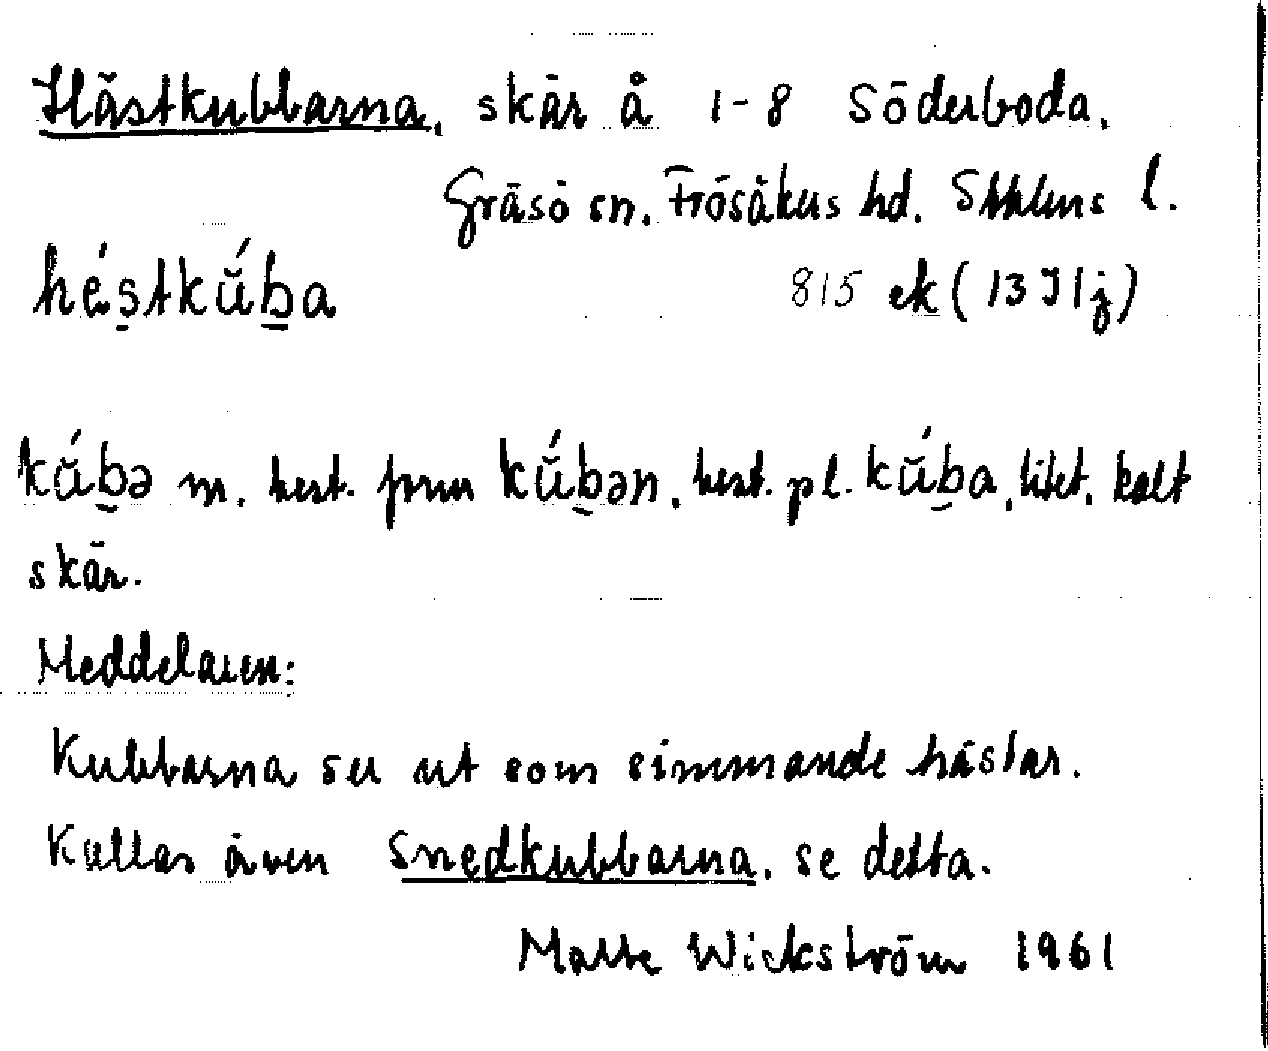 Hästkubbarna, skär å 1-8 Söderboda,
Gräsö sn. Frösåkers hd. Sthlms l.
hę́stkŭ́b̠a 815 ek (13 I 1 j)
kŭ́b̠ə m. best. form kŭ́b̠ən, best. pl. kŭ́b̠a, litet, kalt
skär.
Meddelaren:
Kubbarna ser ut som simmande hästar.
Kallas även Snedkubbarna, se detta.
Malte Wickström 1961